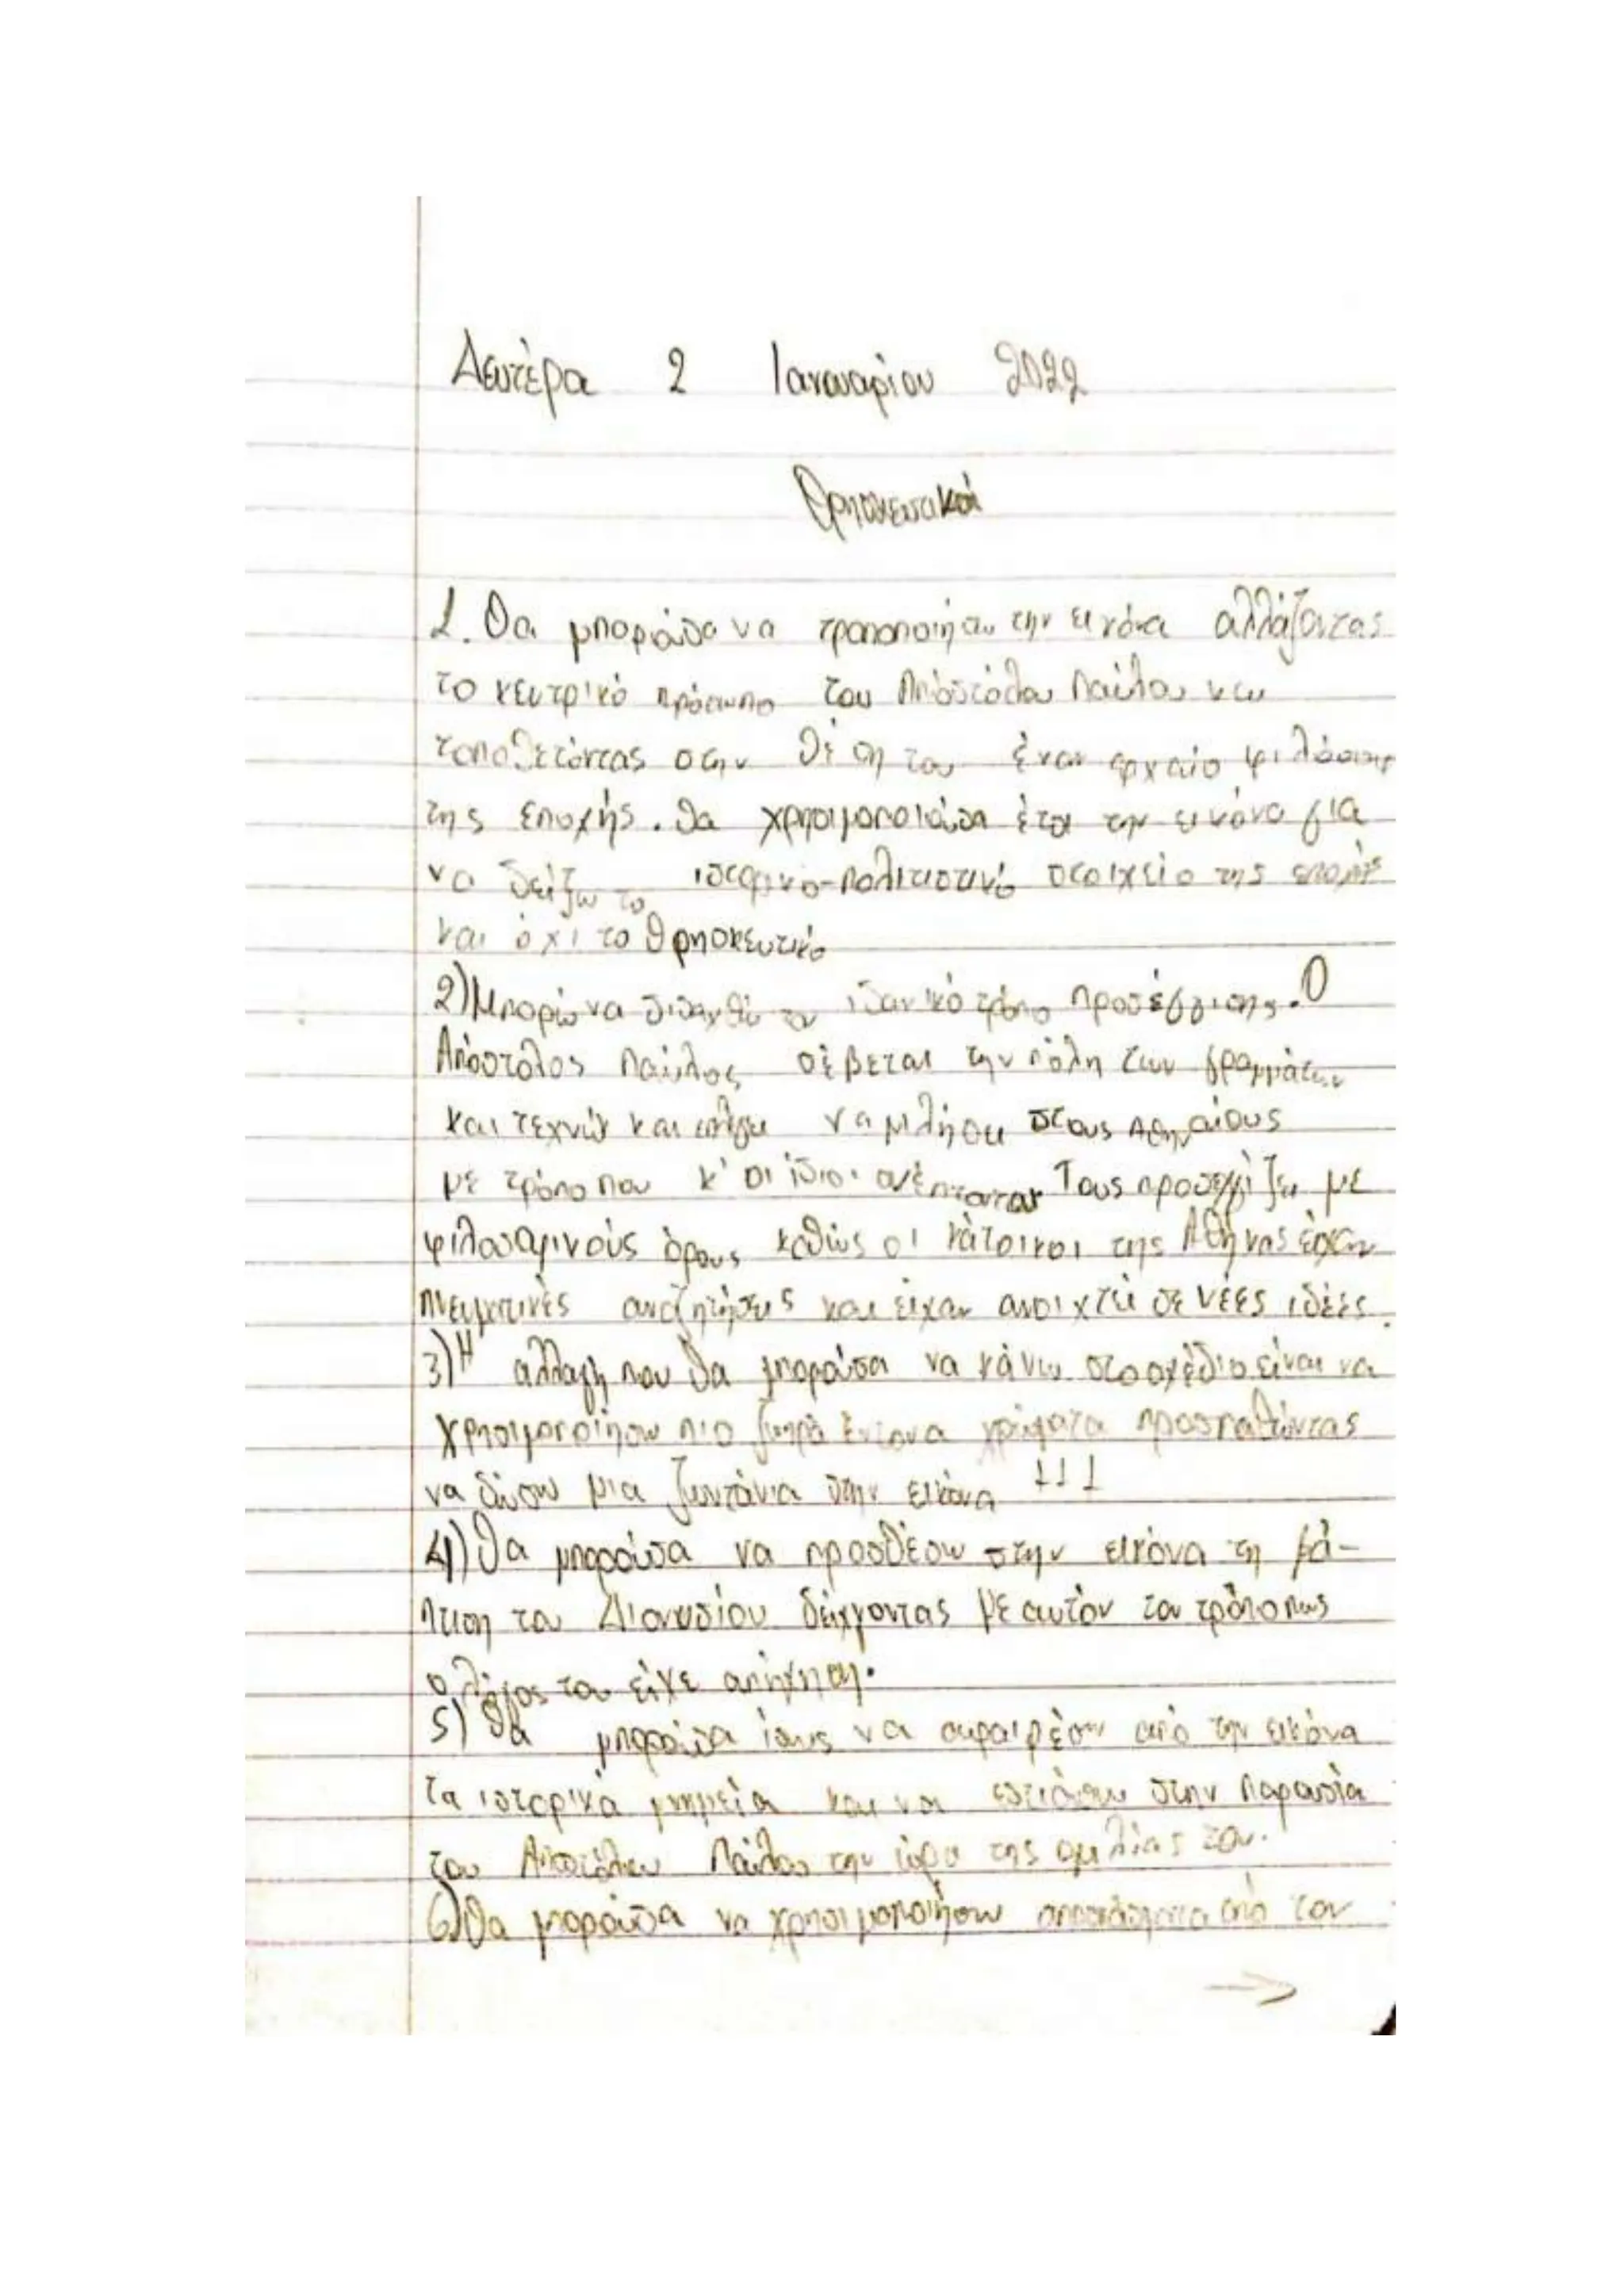 Δευτέρα 2 Ιανουαρίου 2022
Θρησκευτικά
1. Θα μπορούσα να τροποποιήσω την εικόνα αλλάζοντας
το κεντρικό πρόσωπο του Αποστόλου Παύλου και
τοποθετώντας στην θέση του έναν αρχαίο φιλόσοφο
της εποχής. Θα χρησιμοποιούσα έτσι την εικόνα για
να δείξω το ιστορικο-πολιτιστικό στοιχείο της εποχής
και όχι το θρησκευτικό
2) Μπορώ να διδαχθώ τον ιδανικό τρόπο προσέγγισης. Ο
Απόστολος Παύλος σέβεται την πόλη των γραμμάτων
και τεχνών και να μιλήσει στους Αθηναίους
με τρόπο που κ' οι ίδιοι σκέπτονται Τους προσεγγίζει με
φιλοσοφικούς όρους καθώς οι κάτοικοι της Αθήνας έχουν
πνευματικές αναζητήσεις και είχαν ανοιχτεί σε νέες ιδέες.
3) Η αλλαγή που θα μπορούσα να κάνω στο σχέδιο είναι να
χρησιμοποιήσω πιο ζωηρά έντονα χρώματα προσπαθώντας
να δώσω μια ζωντάνια στην εικόνα !!!
4) Θα μπορούσα να προσθέσω στην εικόνα τη βά-
πτιση του Διονυσίου δείχνοντας με αυτόν τον τρόπο πως
ο λόγος του είχε απήχηση.
5) Θα μπορούσα ίσως να αφαιρέσω από την εικόνα
τα ιστορικά μνημεία και να εστιάσω στην παρουσία
του Αποστόλου Παύλου την ώρα της ομιλίας του.
6) Θα μπορούσα να χρησιμοποιήσω αποσπάσματα από τον
→